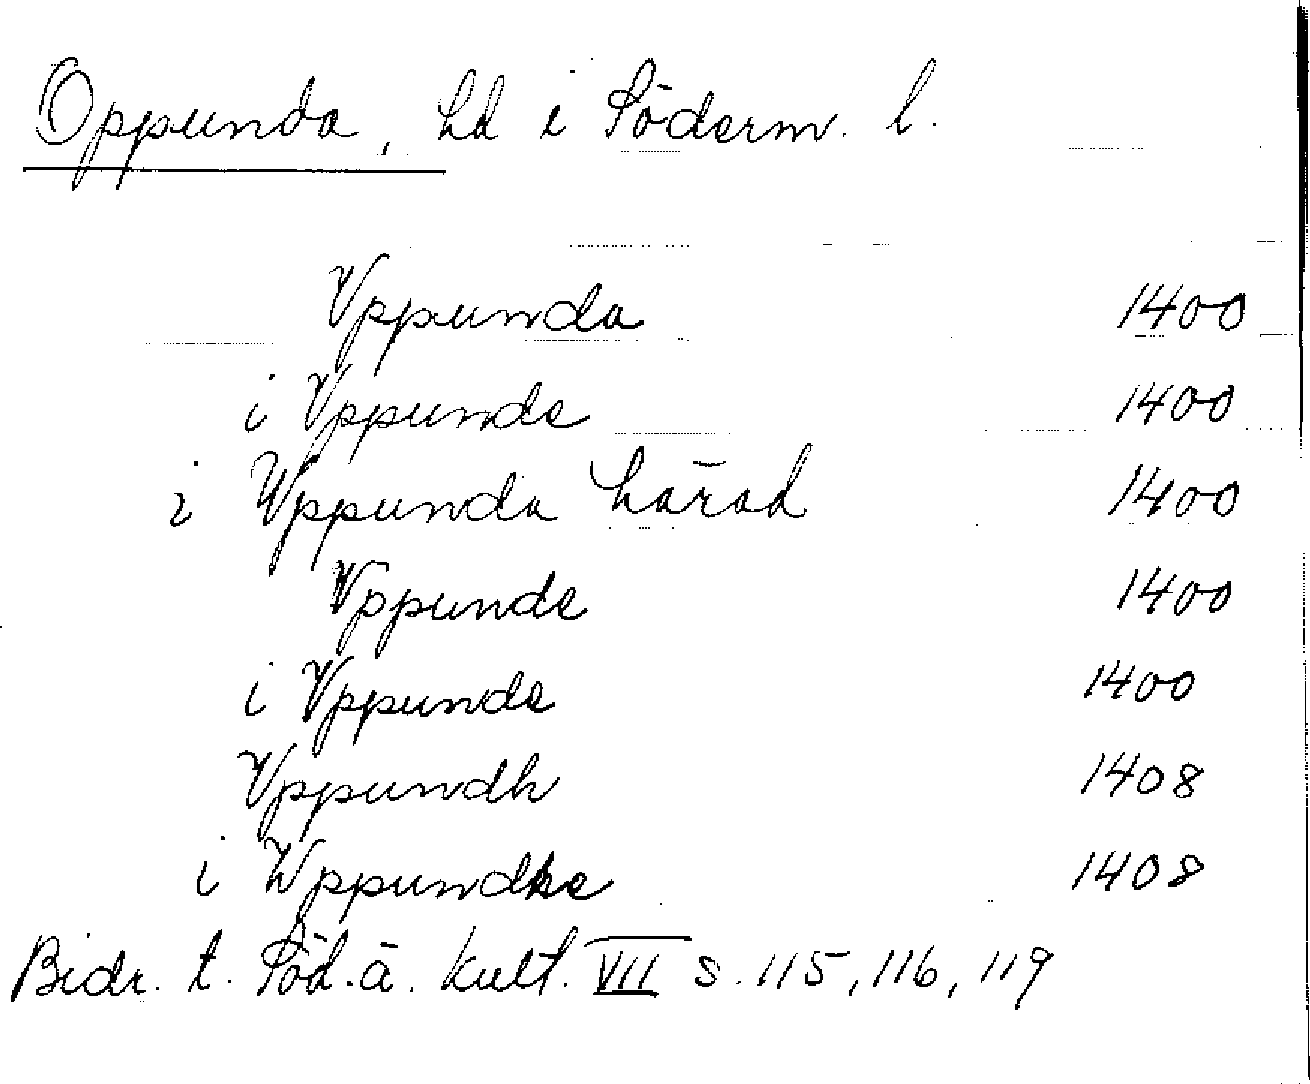 Oppunda, hd i Söderm. l.
Vppunda 1400
i Vppunde 1400
i Wppunda härad 1400
Vppunde 1400
i Vppunde 1400
Vppundh 1408
i Wppundhe 1408
Bidr. t. Söd. ä. kult. VII s. 115, 116, 119